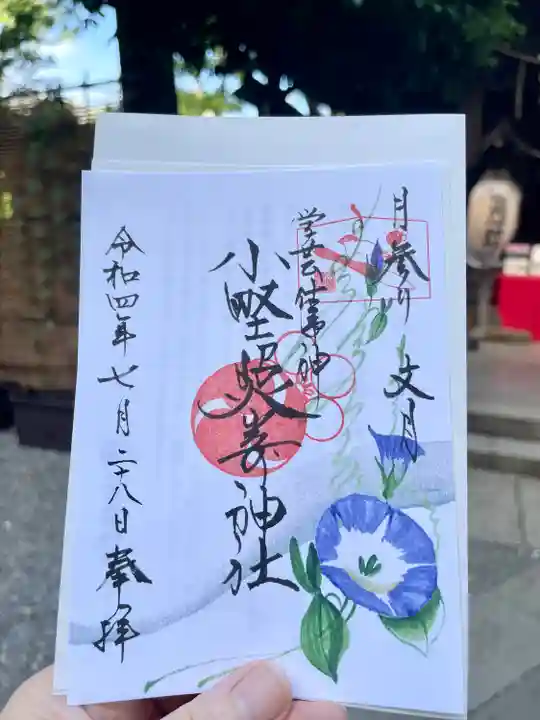 月参り 文月
学芸天神
小野照崎神社
令和四年七月二十八日 奉拝